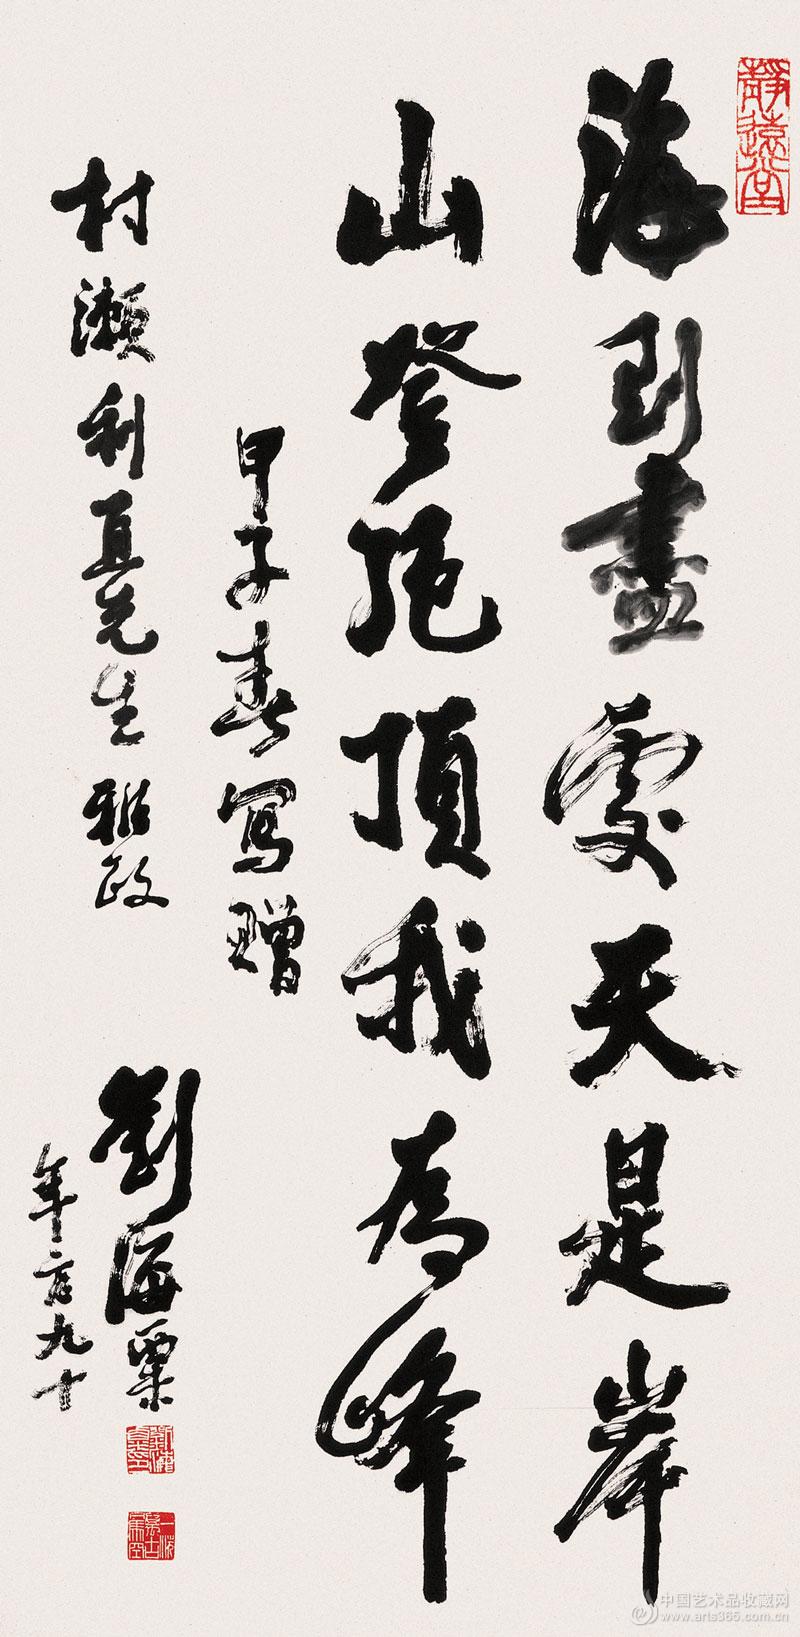 靜遠堂
海到盡處天是岸
山登絕頂我為峰
甲子春寫贈
村瀨利直先生雅政
劉海粟
年方九十
中国艺术品收藏网
www.arts365.com.cn